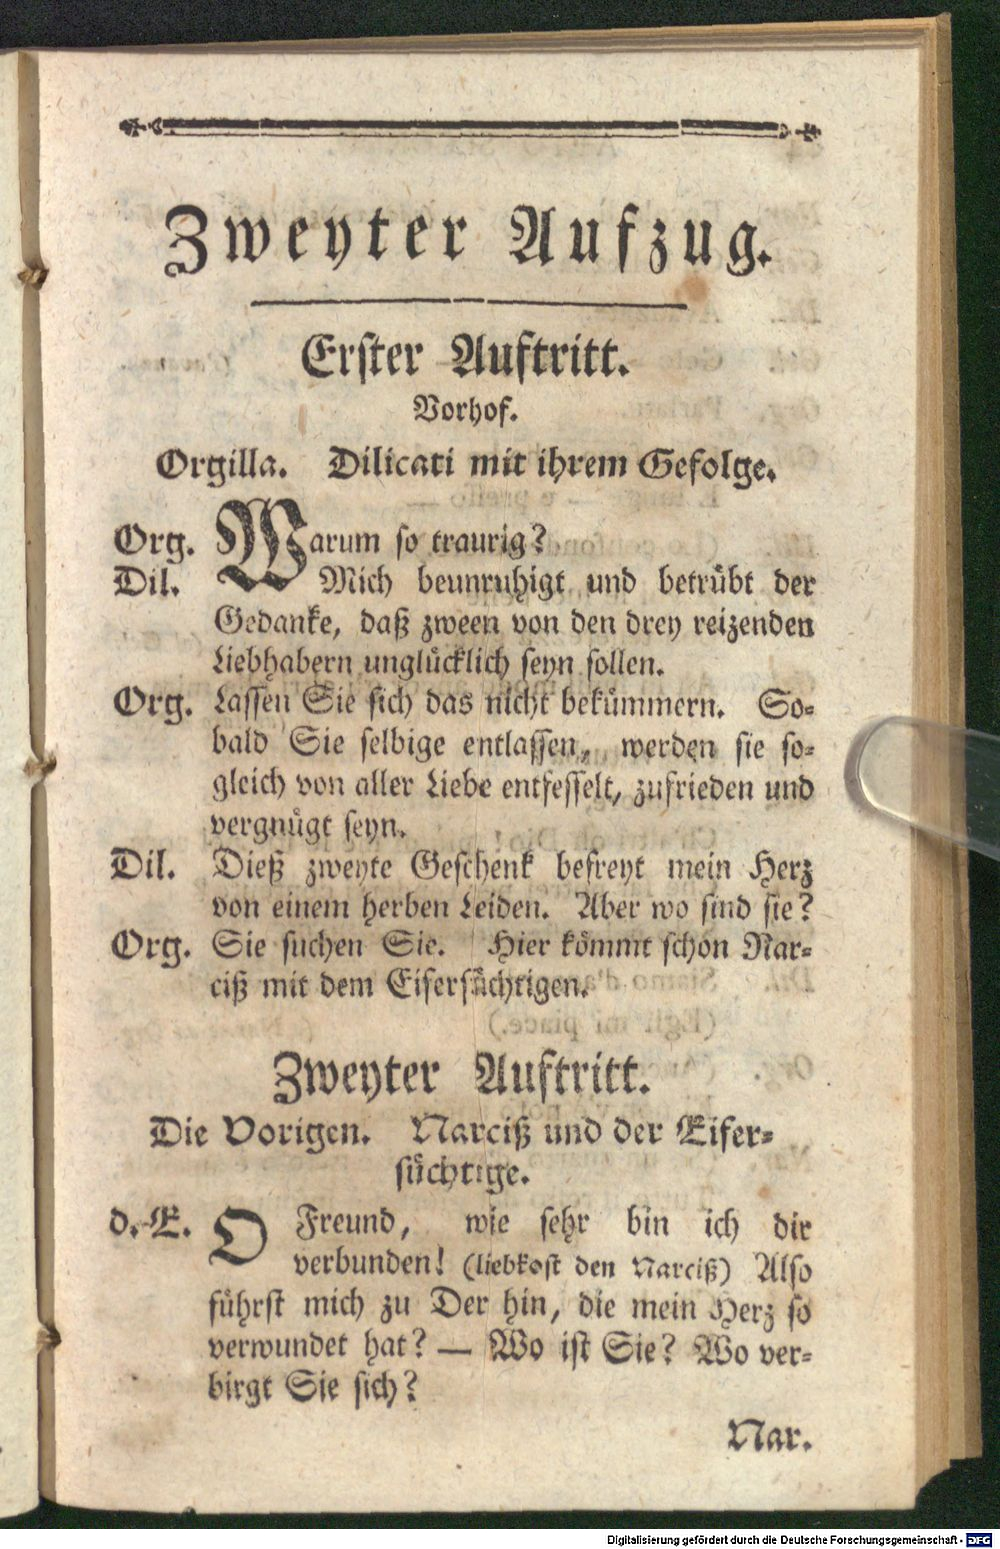 Zweyter Aufzug.
Erster Auftritt.
Vorhof.
Orgilla. Dilicati mit ihrem Gefolge.
Org. Warum so traurig?
Dil. Mich beunruhigt und betrübt der
Gedanke, daß zween von den drey reizenden
Liebhabern unglücklich seyn sollen.
Org. Lassen Sie sich das nicht bekümmern. So-
bald Sie selbige entlassen, werden sie so-
gleich von aller Liebe entfesselt, zufrieden und
vergnügt seyn.
Dil. Dieß zweyte Geschenk befreyt mein Herz
von einem herben Leiden. Aber wo sind sie?
Org. Sie suchen Sie. Hier kömmt schon Nar-
ciß mit dem Eifersüchtigen.
Zweyter Auftritt.
Die Vorigen. Narciß und der Eifer-
süchtige.
d. E. O Freund, wie sehr bin ich dir
verbunden! (liebkost den Narciß) Also
führst mich zu Der hin, die mein Herz so
verwundet hat? — Wo ist Sie? Wo ver-
birgt Sie sich?
Nar.
Digitalisierung gefördert durch die Deutsche Forschungsgemeinschaft - DFG